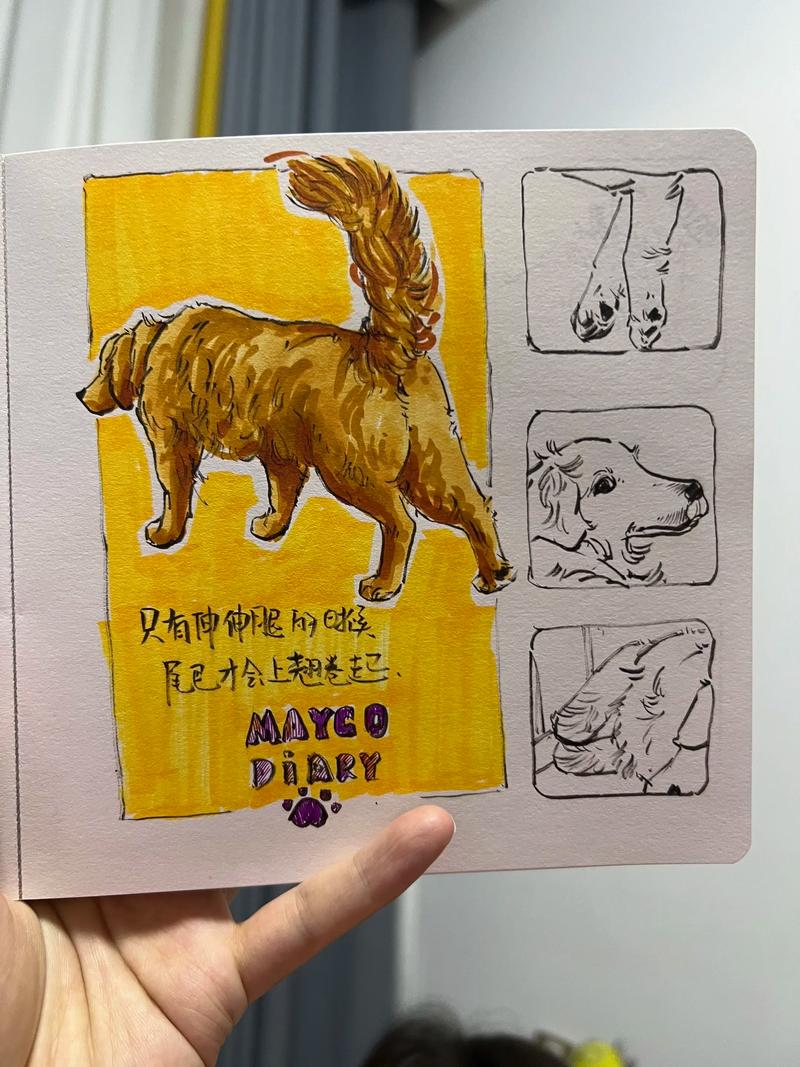 只有伸伸腿的时候
尾巴才会上翘卷起.
MAYCO
DiARY